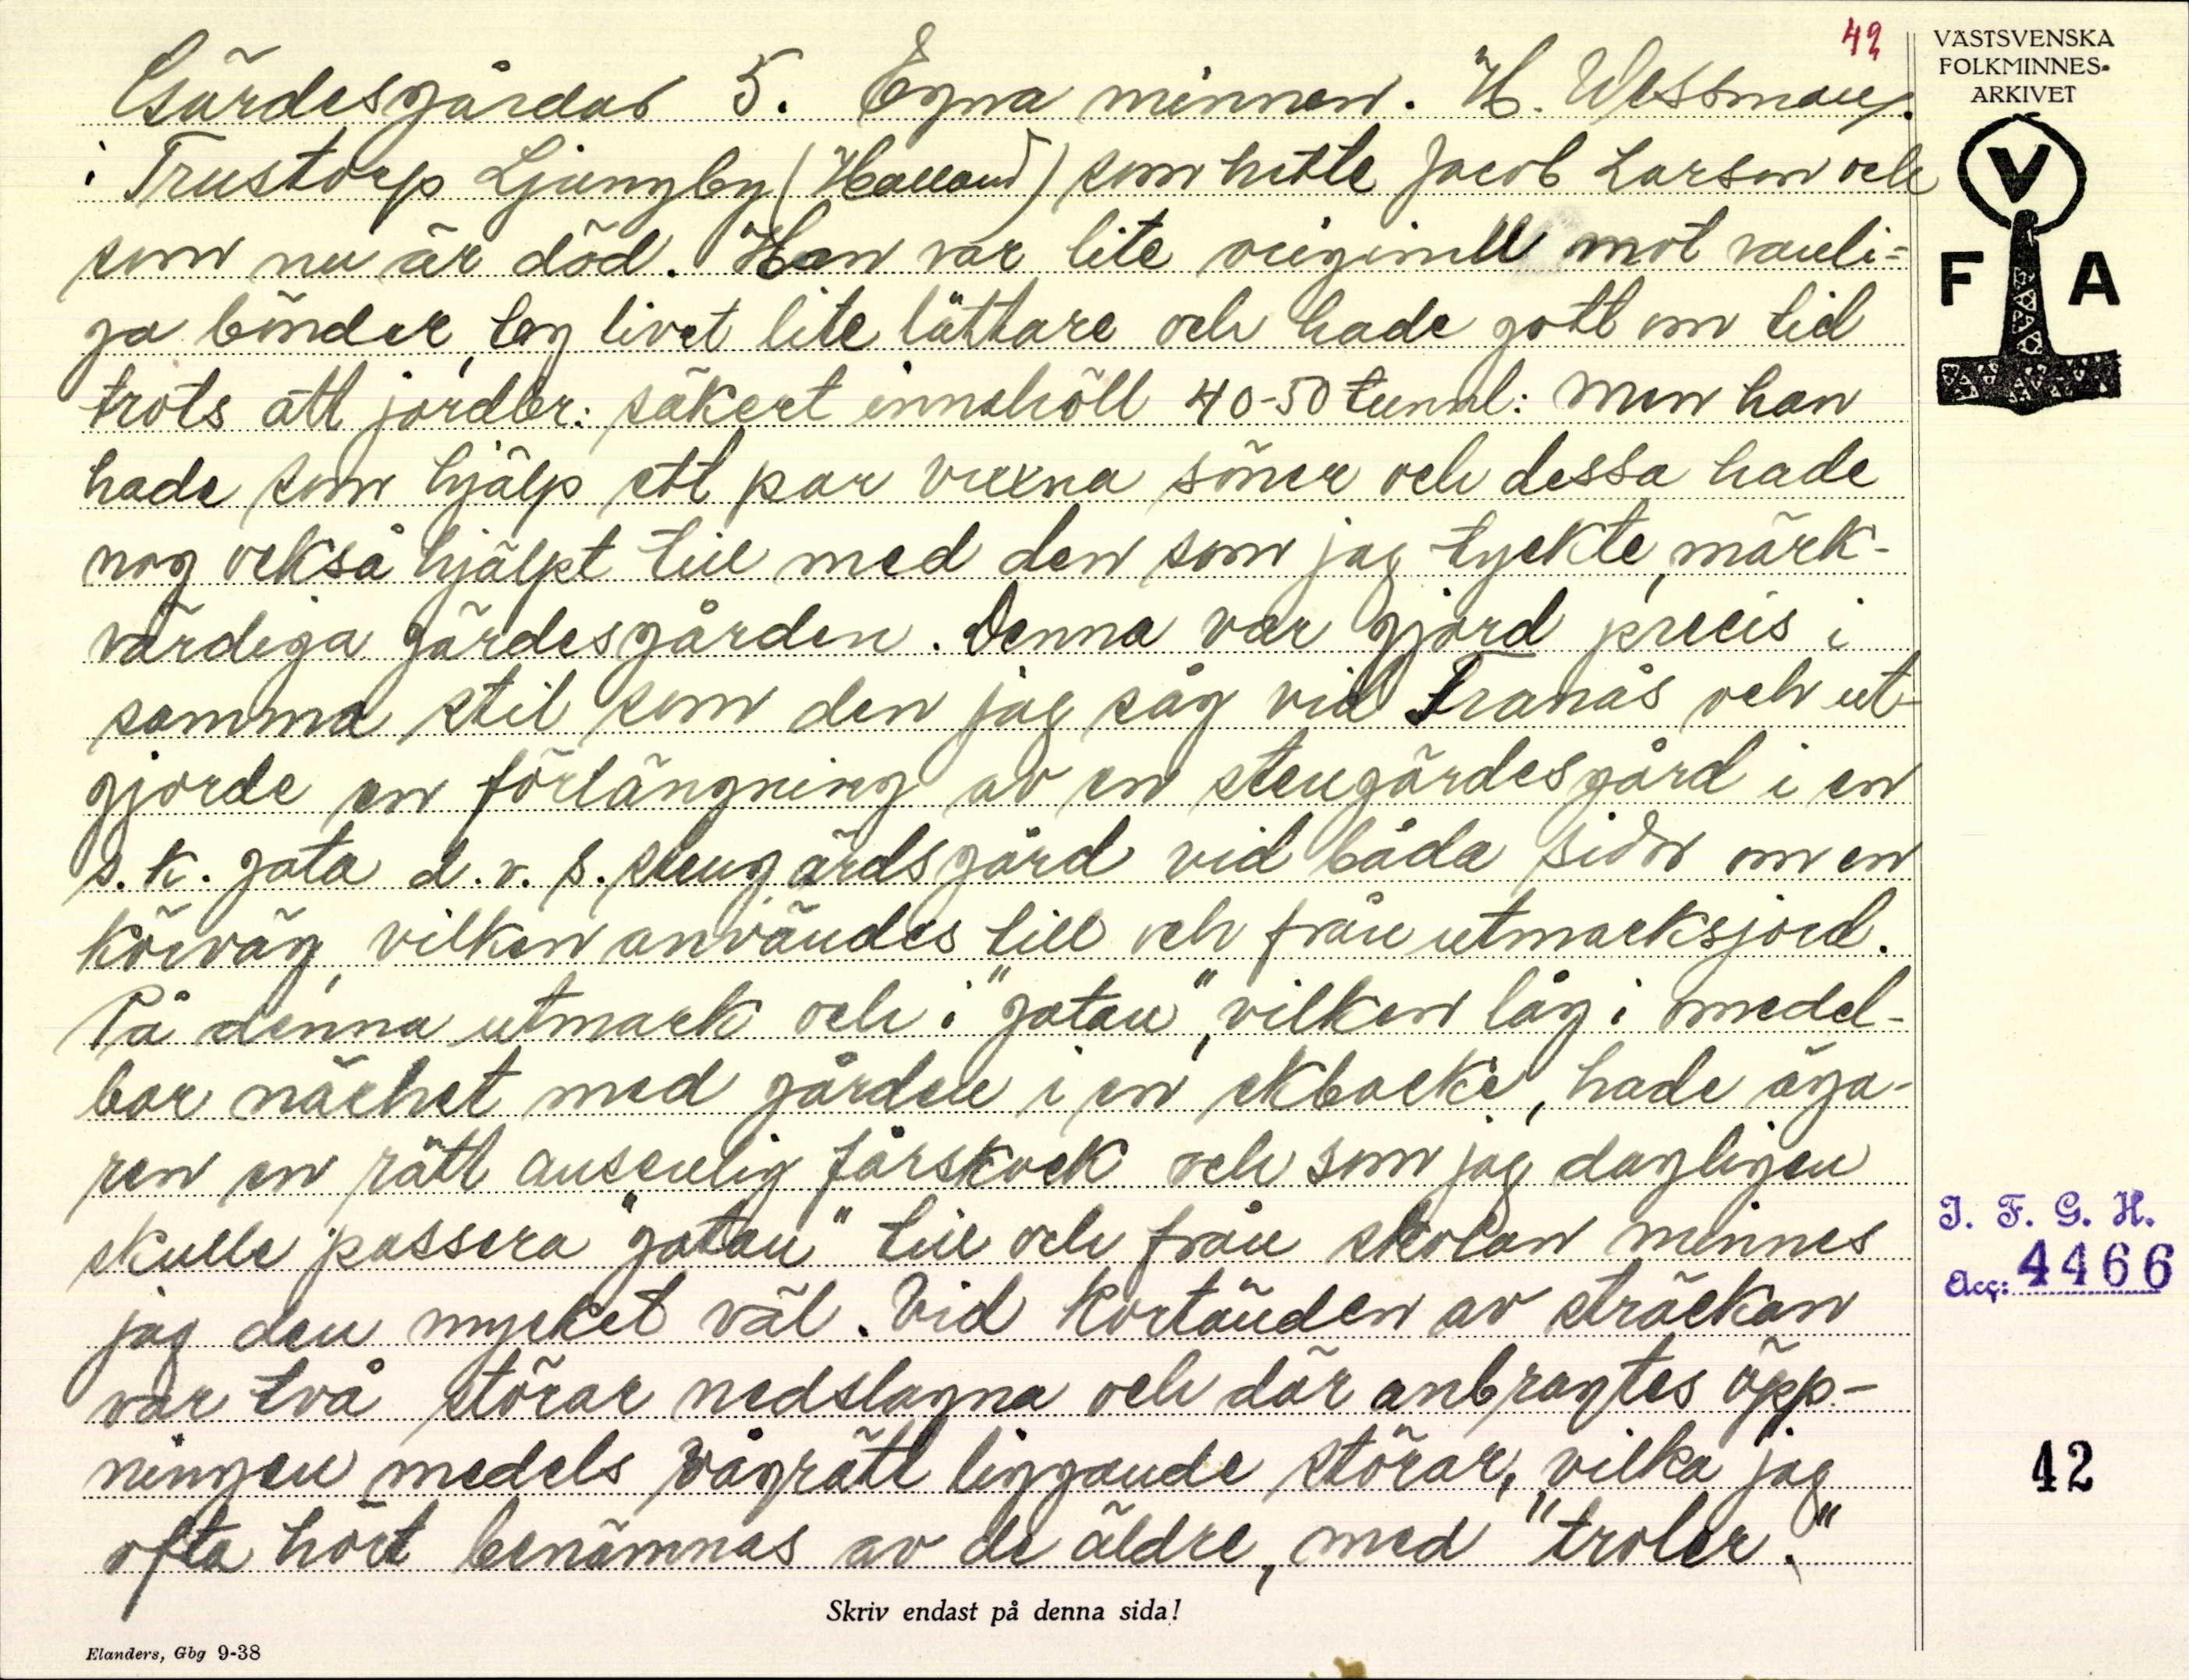 42
Gärdesgårdar 5. Egna minnen. H. Wessman.
i Trustorp Ljungby (Halland) som hette Jacob Larson och
som nu är död. Han var lite originell mot vanli=
ga bönder, tog livet lite lättare och hade gott om tid
trots att jordbr: säkert innehöll 40-50 tunnl: Men han
hade som hjälp ett par vuxna söner och dessa hade
nog också hjälpt till med den som jag tyckte, märk-
värdiga gärdesgården. Denna var gjord precis i
samma stil som den jag såg vid Tranås och ut-
gjorde en förlängning av en stengärdesgård i en
s.k. gata d.v.s. stengärdsgård vid båda sidor om en
körväg, vilken användes till och från utmarksjord.
På denna utmark och i "gatan", vilken låg i omedel-
bar närhet med gården i en ekbacke, hade äga-
ren en rätt ansenlig fårskock och som jag dagligen
skulle passera "gatan" till och från skolan minnes
jag den mycket väl. Vid kortänden av sträckan
var två störar nedslagna och där anbragtes öpp-
ningen medels vågrätt liggande störar, vilka jag
ofta hört benämnas av de äldre, med "troler."
Skriv endast på denna sida!
Elanders, Gbg 9-38
VÄSTSVENSKA
FOLKMINNES-
ARKIVET
V
F A
I. F. G. H.
Acc: 4466
42